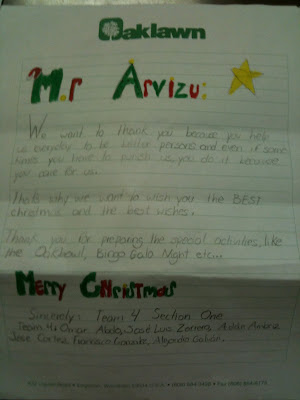 Oaklawn
M.r Arvizu:
We want to thank you because you help
us everyday to be better persons and even if some
times you have to punish us, you do it because
you care for us.
Thats why we want so wish you the BEST
christmas and the best wishes.
Thank you for preparing the special activities, like
the Oakbowl, Bingo Gala Night etc...
Merry Christmas
Sincerely: Team 4 Section One
Team 4: Omar José Luis
José Cortez, Francisco Alejandro